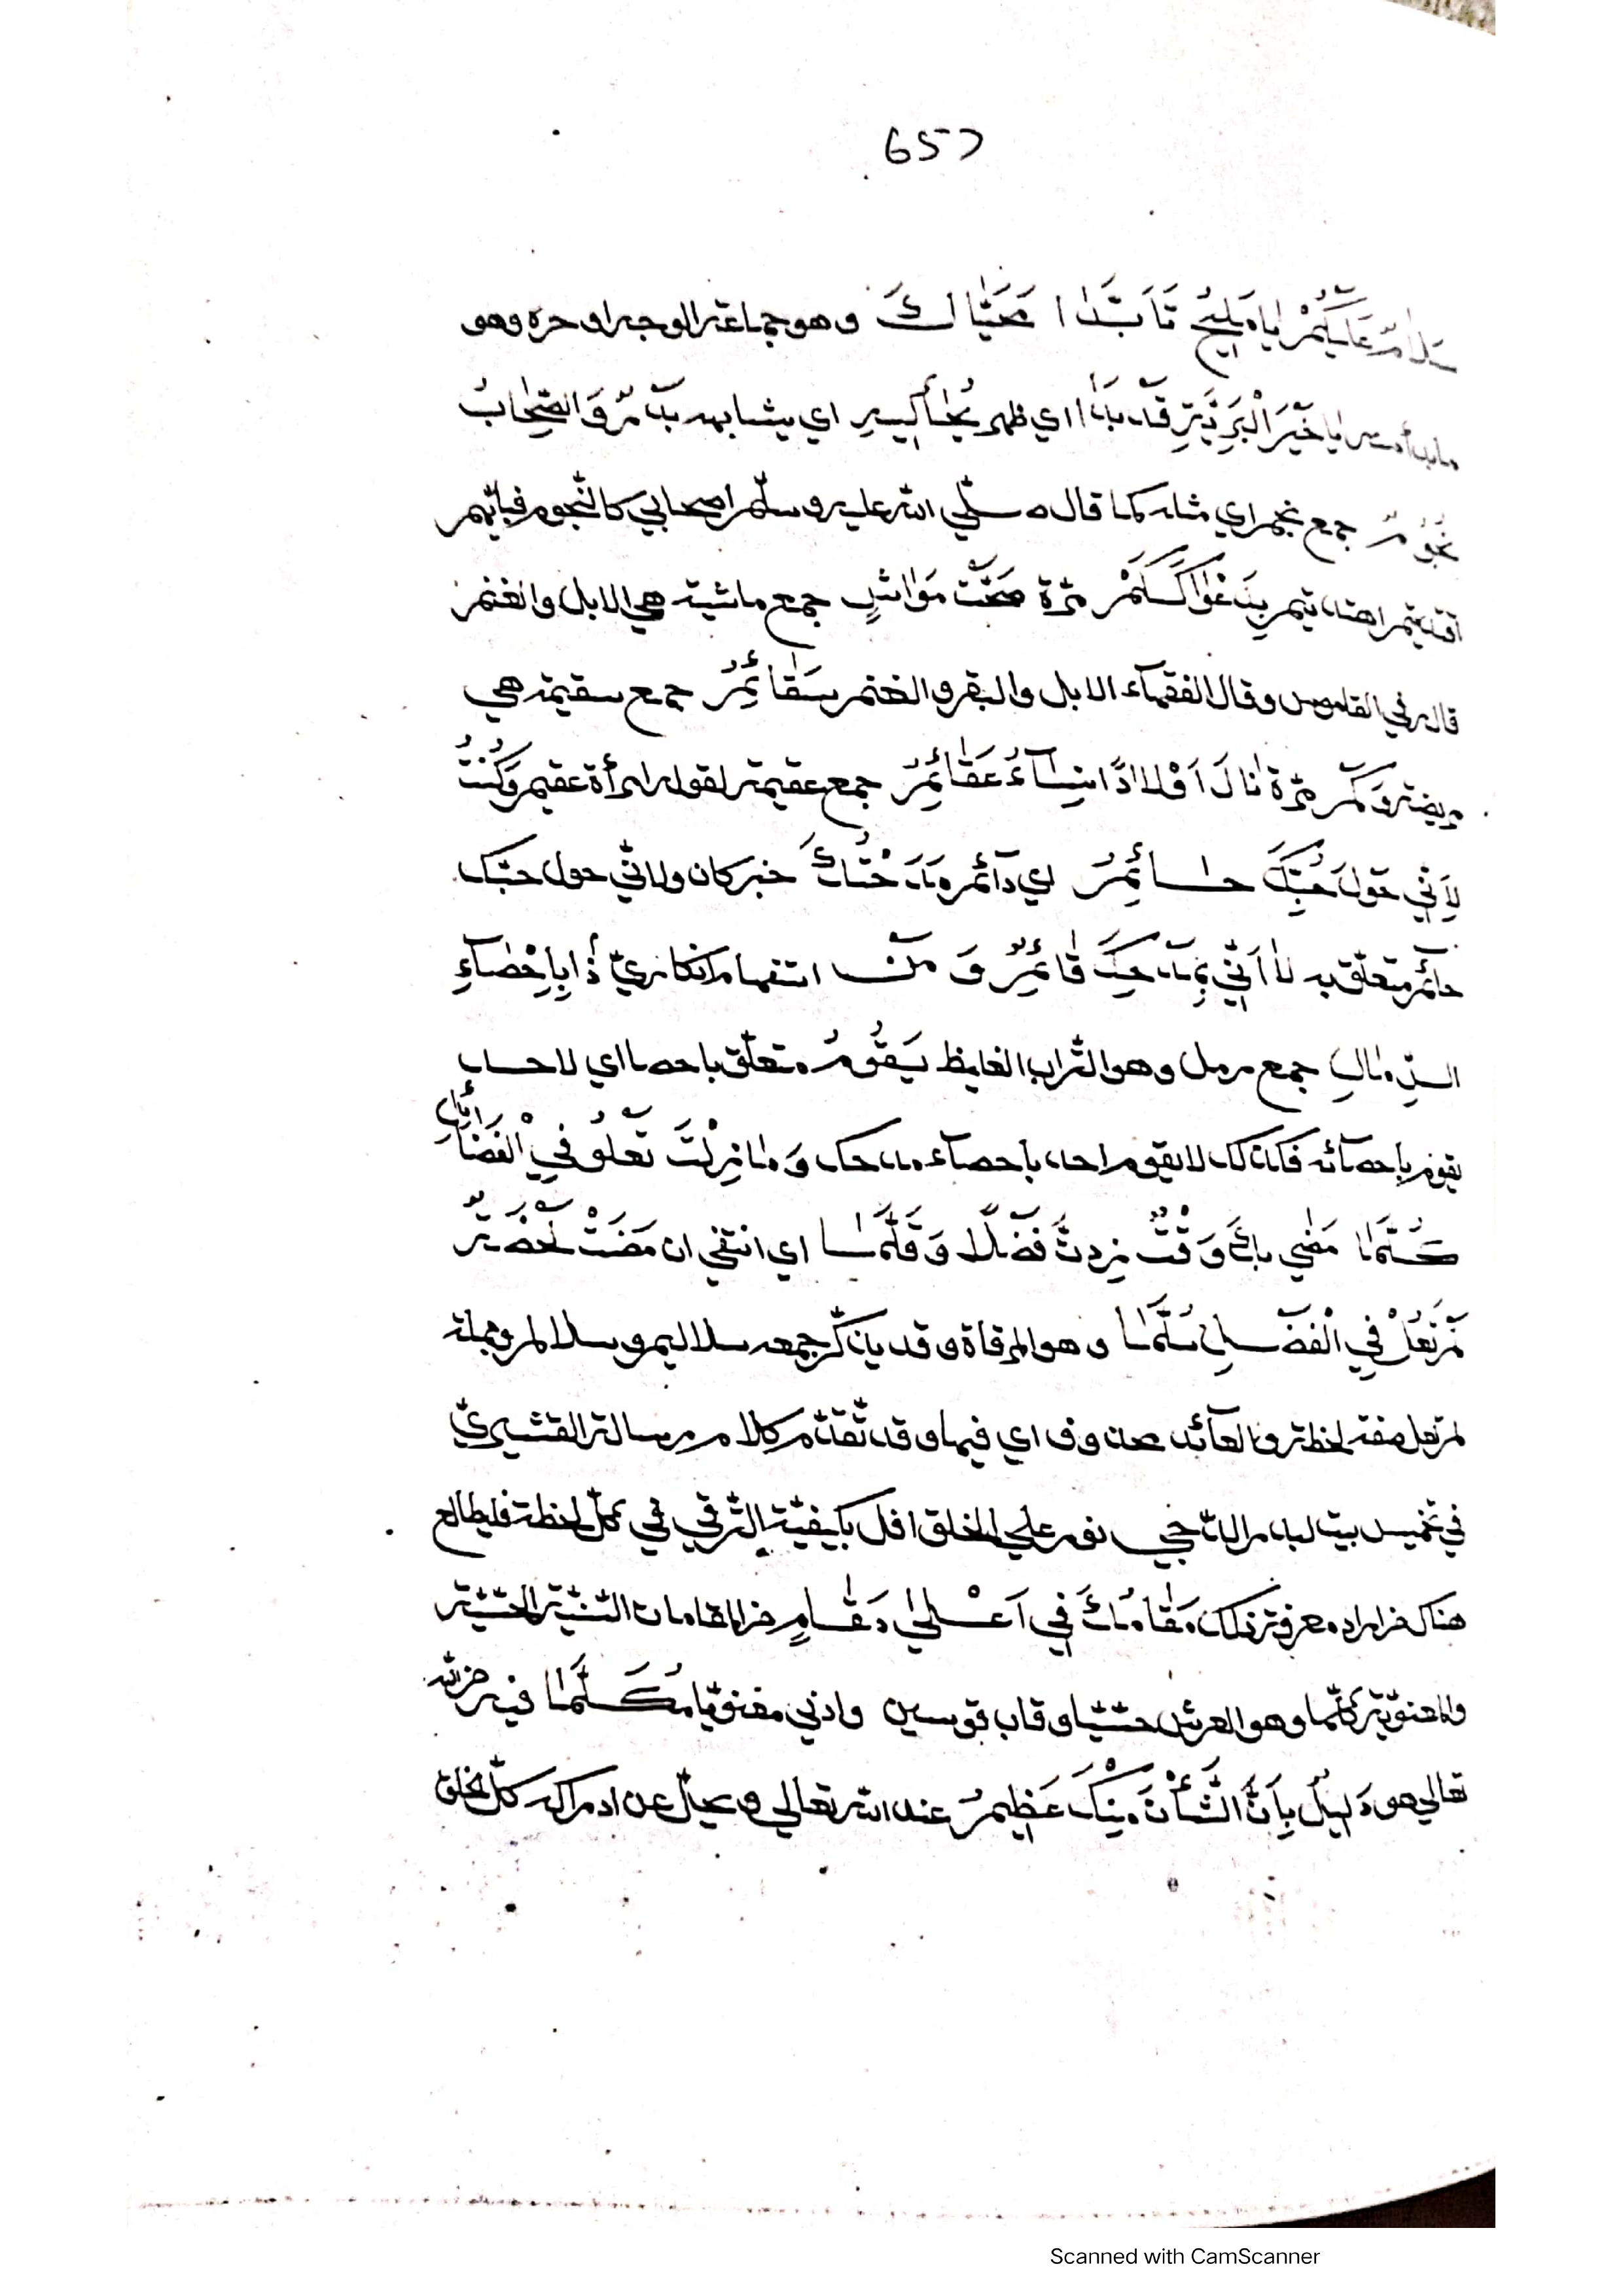 657
سَلَامٌ عَلَيْكُمْ يَا مَلِيحُ تَأَبَّدَا مُحَيَّاكَ وهو جماعة الوجه او حره وهو
ما بدأ منه يَا خَيْرَ الْبَرِيَّةِ قَدْ بَدَا اي ظهر اي يشابهه بَدْرٌ وَالصِّحَابُ
نُجُومٌ جمع نجم اي مثله كما قال صلّي الله عليه وسلّم اصحابي كالنّجوم فبايّهم
اقتديتم اهتديتم كَمْ مَرَّة صَحَّتْ مَوَاشٍ جمع ماشية هي الابل والغنم
قاله في القاموس وقال الفقهآء الابل والبقر والغنم سَقَائِمُ جمع سقيمة هي
مريضة وَكَمْ مَرَّة نَالَ اَوْلَادًا نِسَآءٌ عَقَائِمُ جمع عقيمة لقوله امرأة عقيم وَكُنْتُ
لِاَنِّي حَوْلَ حُبِّكَ حَائِمُ اي دآئم مَدَحْتُكَ خبر كان ولانّي حول حبّك
حآئم متعلّق به لَا اَنِّي بِمَدْحِكَ قَائِمٌ وَ مَنْ استفهام انكاريّ ذَا بِاِحْصَآءِ
الرِّمَالِ جمع رمل وهو التّراب الغليظ يَقُومُ متعلّق باحصا اي لا احد
يقوم باحصآئه فكذلك لا يقوم احد باحصآء مدحك وَمَا زِلْتَ تَعْلُو فِي الْفَضَائِلِ
كُلَّمَا مَضٰي بِكَ وَقْتٌ زِدتَّ فَضْلًا وَقَلَّمَا اي انتفي ان مَضَتْ لَحْظَةٌ
لَمْ تَعْلُ فِي الْفَضْلِ سُلَّمَا وهو المرقاة وقد يذكّر جمعه سلاليم وسلالم وجملة
لم تعل صفة لحظة والعآئد محذوف اي فيها وقد تقدّم كلام رسالة القشيريّ
في تخميس بيت لبدر الدّجي نور علي الخلق افل بكيفيّة التّرقّي في كلّ لحظة فليطالع
هناك من اراد معرفة ذلك مَقَامُكَ فِي اَعْلٰي مَقَامٍ من المقامات السّنيّة الحسّيّة
والمعنويّة كلّها وهو العرش حسّيّا وقاب قوسين وادني معنويّا مُكَلَّمَا فيه من الله
تعالي هو دَلِيلٌ بِاَنَّ الشَّأْنَ مِنْكَ عَظِيمُ عند الله تعالي ويجلّ عن ادراكه كلّ الخلق
Scanned with CamScanner